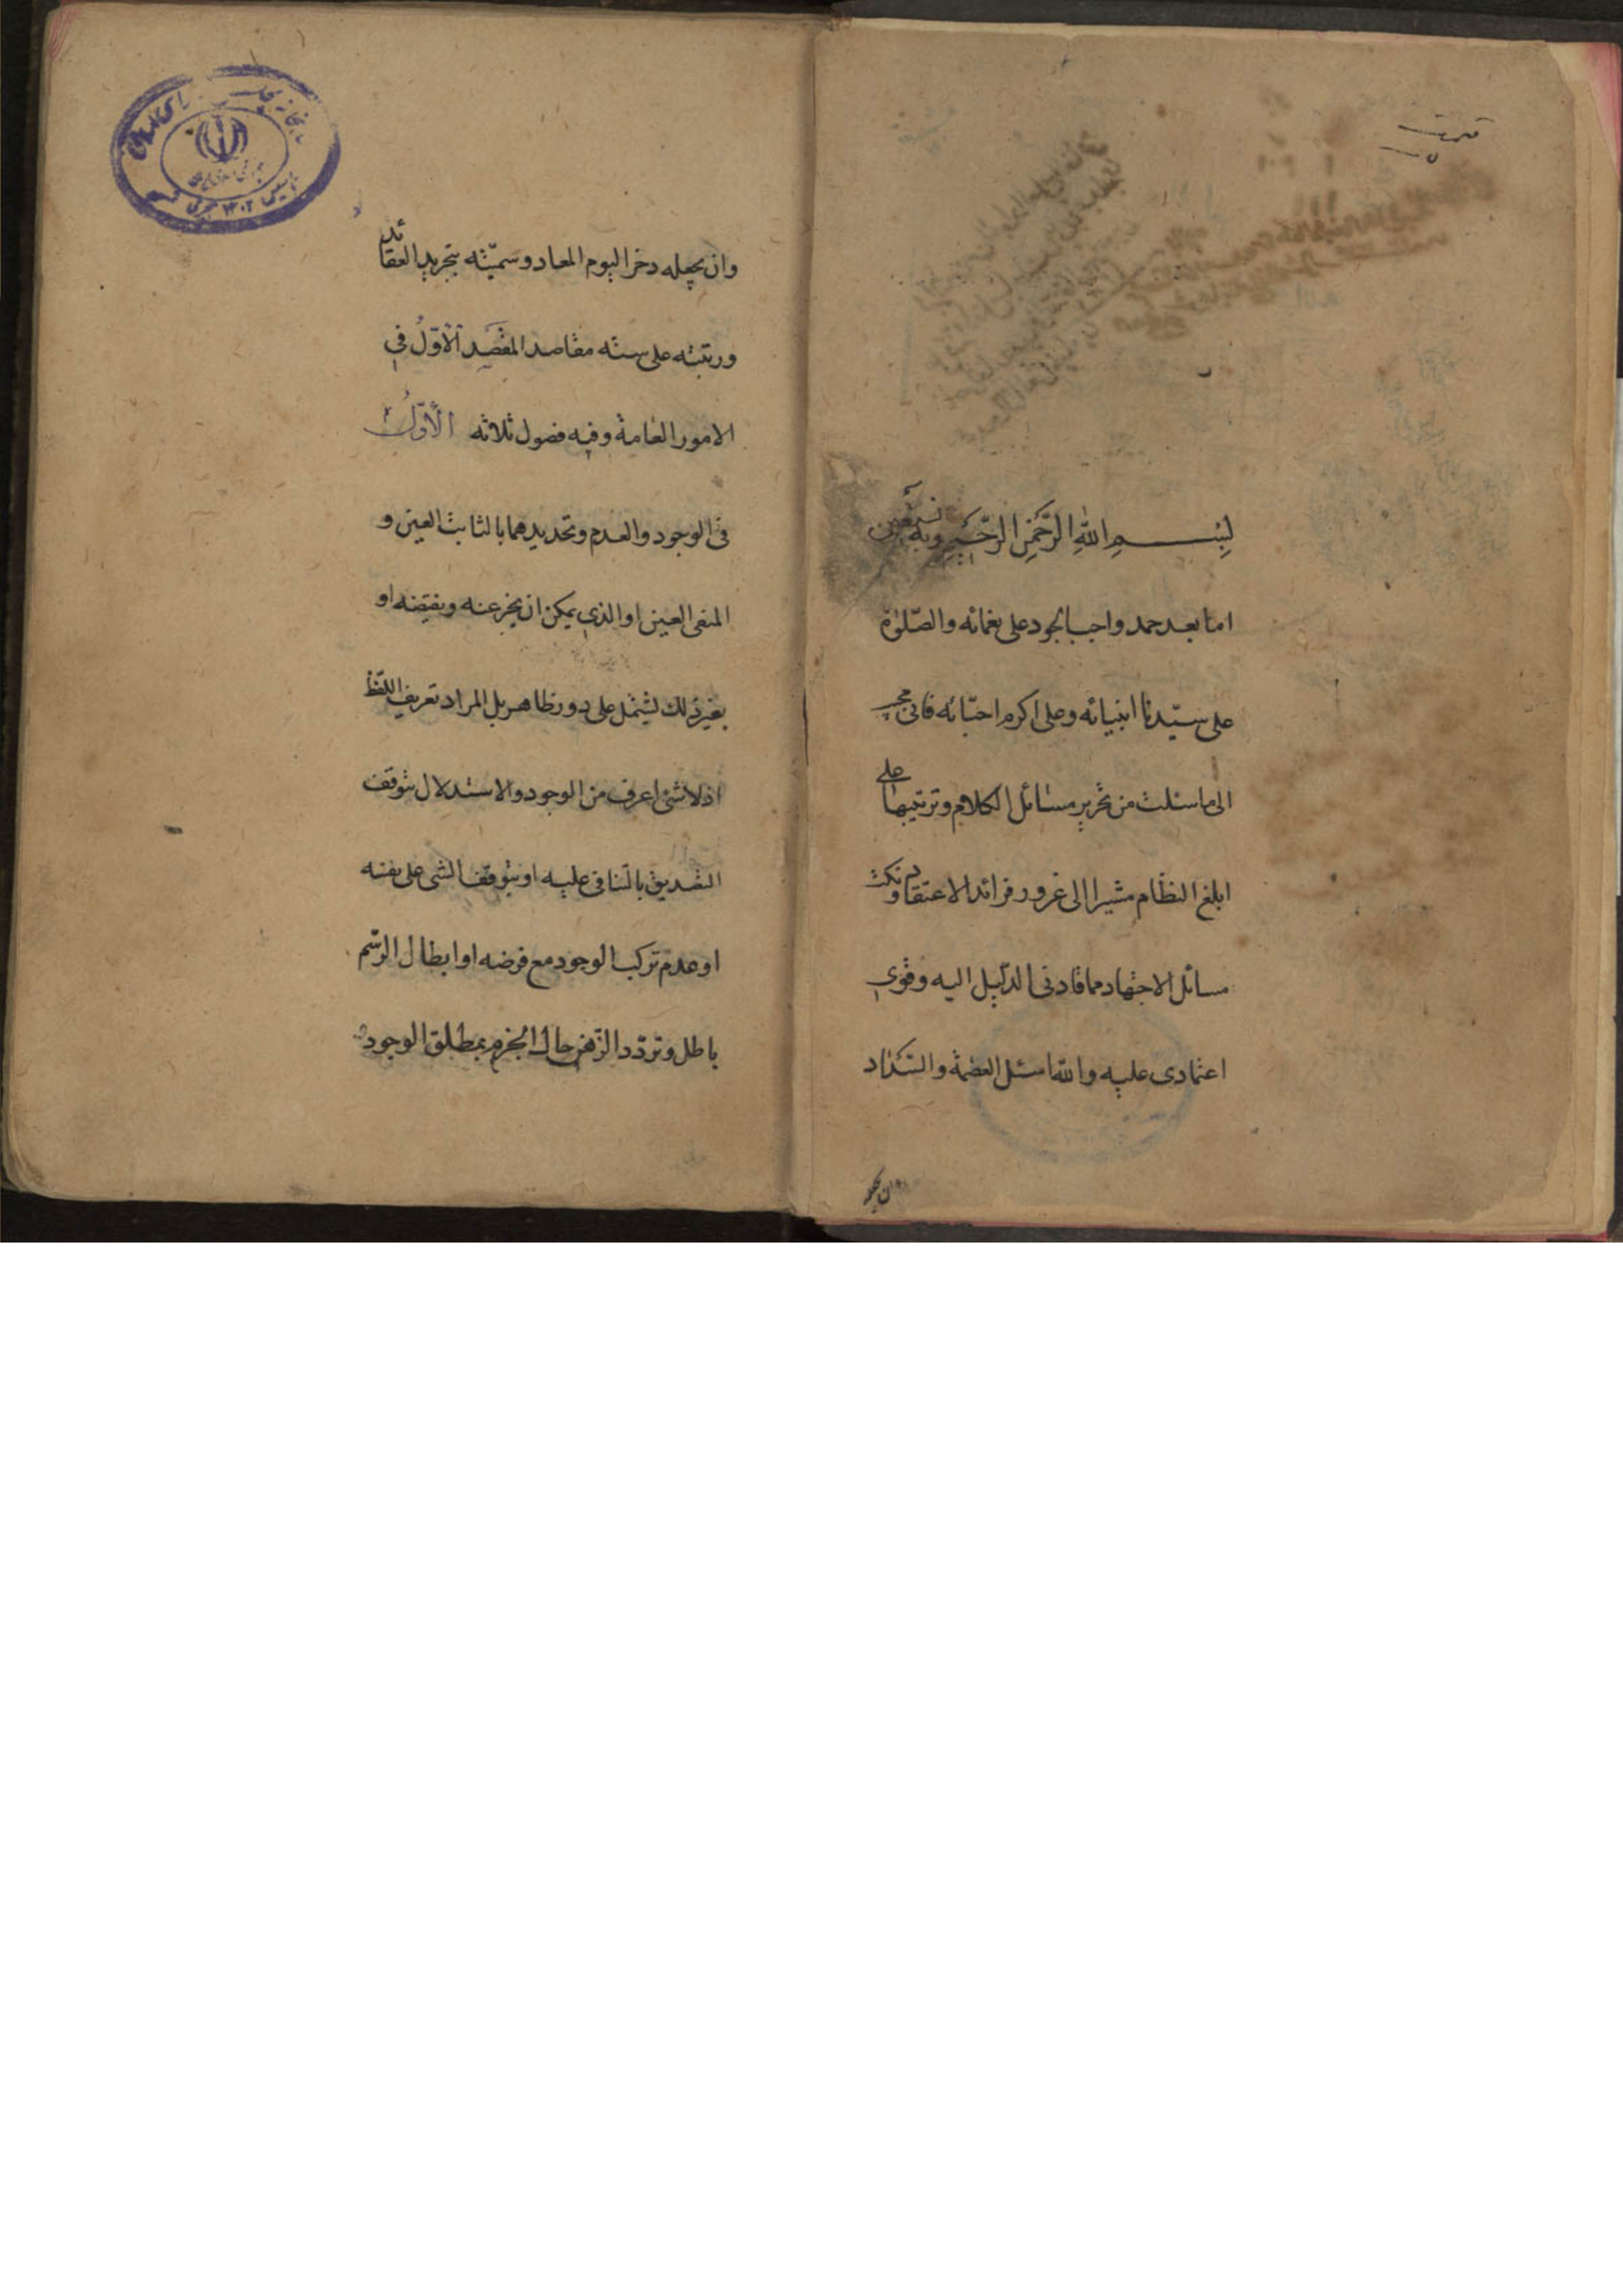 قیمت
بِسْمِ اللّٰهِ الرَّحْمٰنِ الرَّحِيْمِ وبه نستعين
اما بعد حمد واجب الجود على نعمائه والصّلوة
على سيّدنا انبيائه وعلى اكرم احبّائه فانى مجيب
الى ما سئلت من تحرير مسائل الكلام وترتيبها على
ابلغ النظام مشيرا الى غرور فرائد الاعتقاد ونكت
مسائل الاجتهاد مما قادنى الدّليل اليه وقوى
اعتمادى عليه والله اسئل العصمة والسّداد
وان يجعله
وان يجعله ذخرا ليوم المعاد وسمّيته بتجريد العقائد
ورتبته على ستة مقاصد المقصد الاوّل فى
الامور العامة وفيه فصول ثلاثه الاوّل
فى الوجود والعدم وتحديدهما بالثابت العين و
المنفى العين او الذى يمكن ان يخبر عنه ونقيضه او
بغير ذلك يشتمل على دور ظاهر بل المراد تعريف اللّفظ
اذ لا شئ اعرف من الوجود والاستدلال بتوقف
التصديق بالتنافى عليه او بتوقف الشى على نفسه
او عدم تركب الوجود مع فرضه او ابطال الرّسم
باطل وتردّد الذّهن حال الجزم بمطلق الوجود